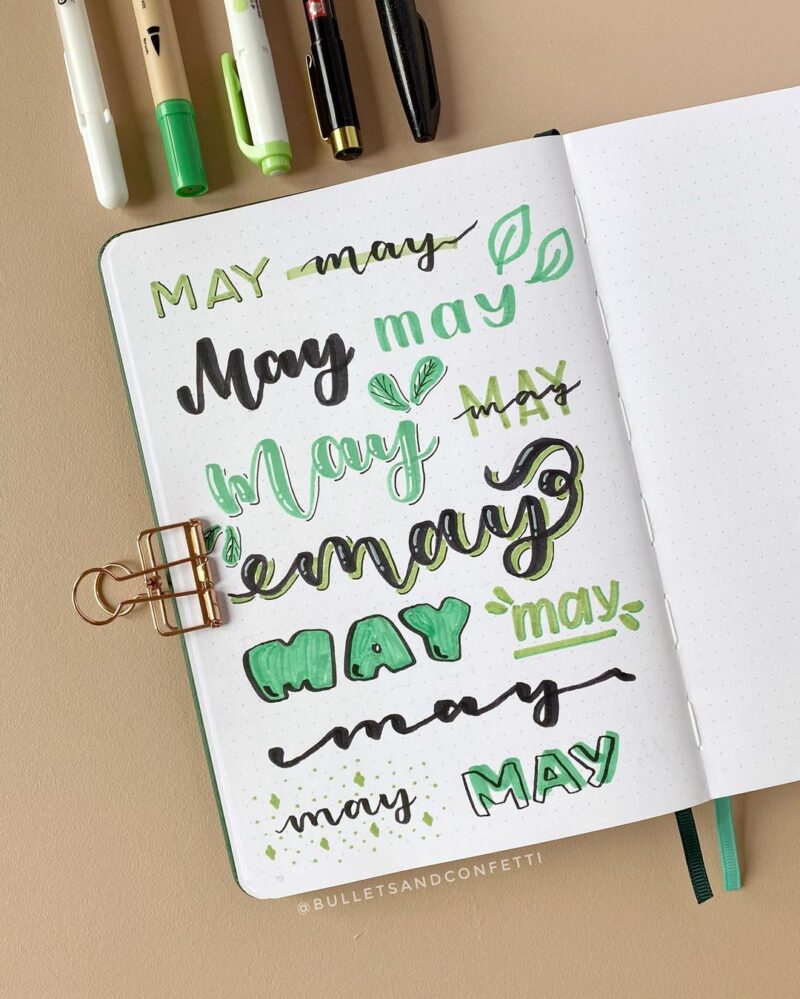 MAY may
May may
May MAY may
may
MAY may
may
may MAY
19
@BULLETSANDCONFETTI